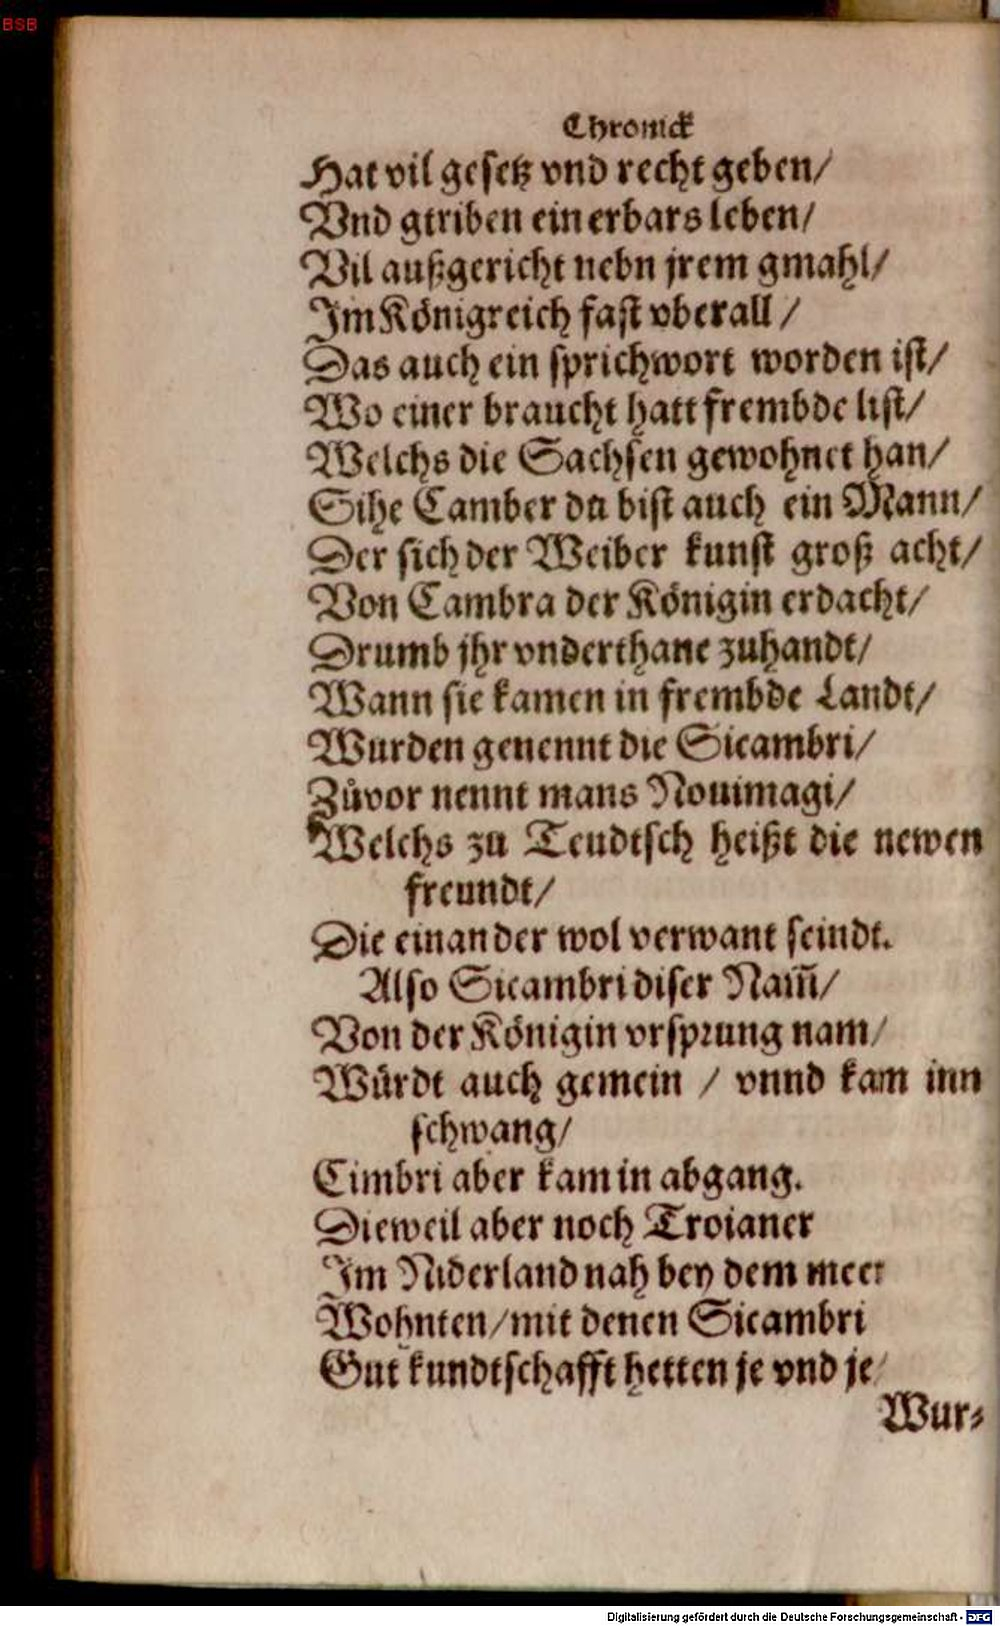 BSB
Chronick
Hat vil gesetz vnd recht geben/
Vnd gtriben ein erbars leben/
Vil außgericht nebn jrem gmahl/
Im Königreich fast vberall /
Das auch ein sprichwort worden ist/
Wo einer braucht hatt frembde list/
Welchs die Sachsen gewohnet han/
Sihe Camber du bist auch ein Mann/
Der sich der Weiber kunst groß acht/
Von Cambra der Königin erdacht/
Drumb jhr vnderthane zuhandt/
Wann sie kamen in frembde Landt/
Wurden genennt die Sicambri/
Zůvor nennt mans Nouimagi/
Welchs zu Teudtsch heißt die newen
freundt/
Die einander wol verwant seindt.
Also Sicambri diser Nam̃/
Von der Königin vrsprung nam/
Würdt auch gemein / vnnd kam inn
schwang/
Cimbri aber kam in abgang.
Dieweil aber noch Troianer
Im Niderland nah bey dem meer
Wohnten/mit denen Sicambri
Gut kundtschafft hetten je vnd je/
Wur⸗
Digitalisierung gefördert durch die Deutsche Forschungsgemeinschaft - DFG